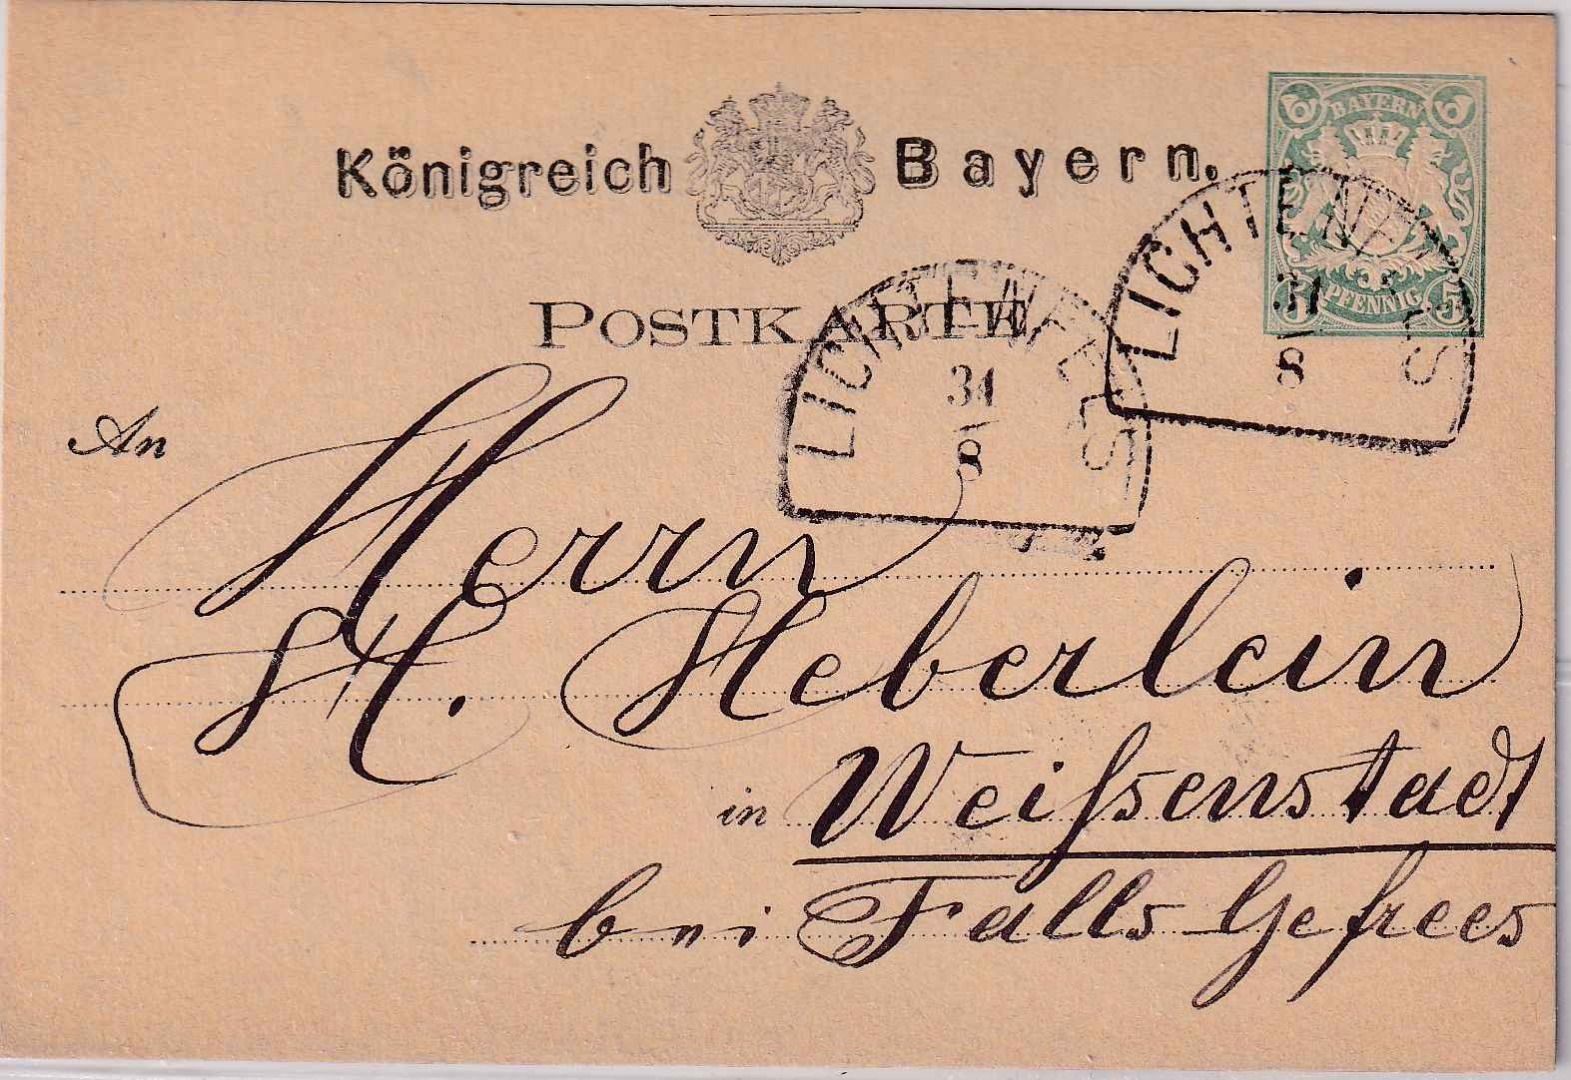 Königreich Bayern.
BAYERN
5 PFENNIG 5
POSTKARTE
LICHTENFELS
31
8
LICHTENFELS
31
8
An
Herrn
H. Heberlein
in Weißenstadt
bei Falls Gefrees